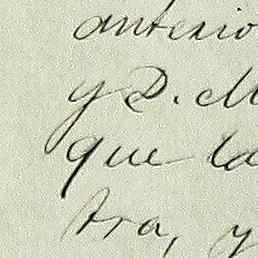 anterio
y D. M
que la
tra, y